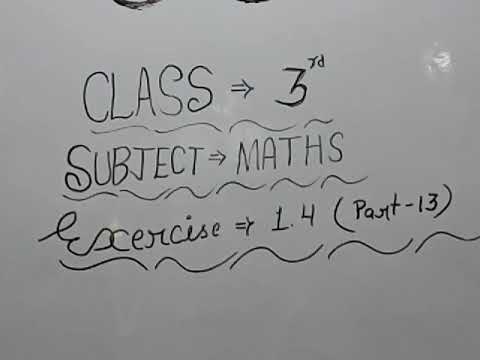 CLASS ⇒ 3rd
SUBJECT ⇒ MATHS
Exercise ⇒ 1.4 (Part-13)